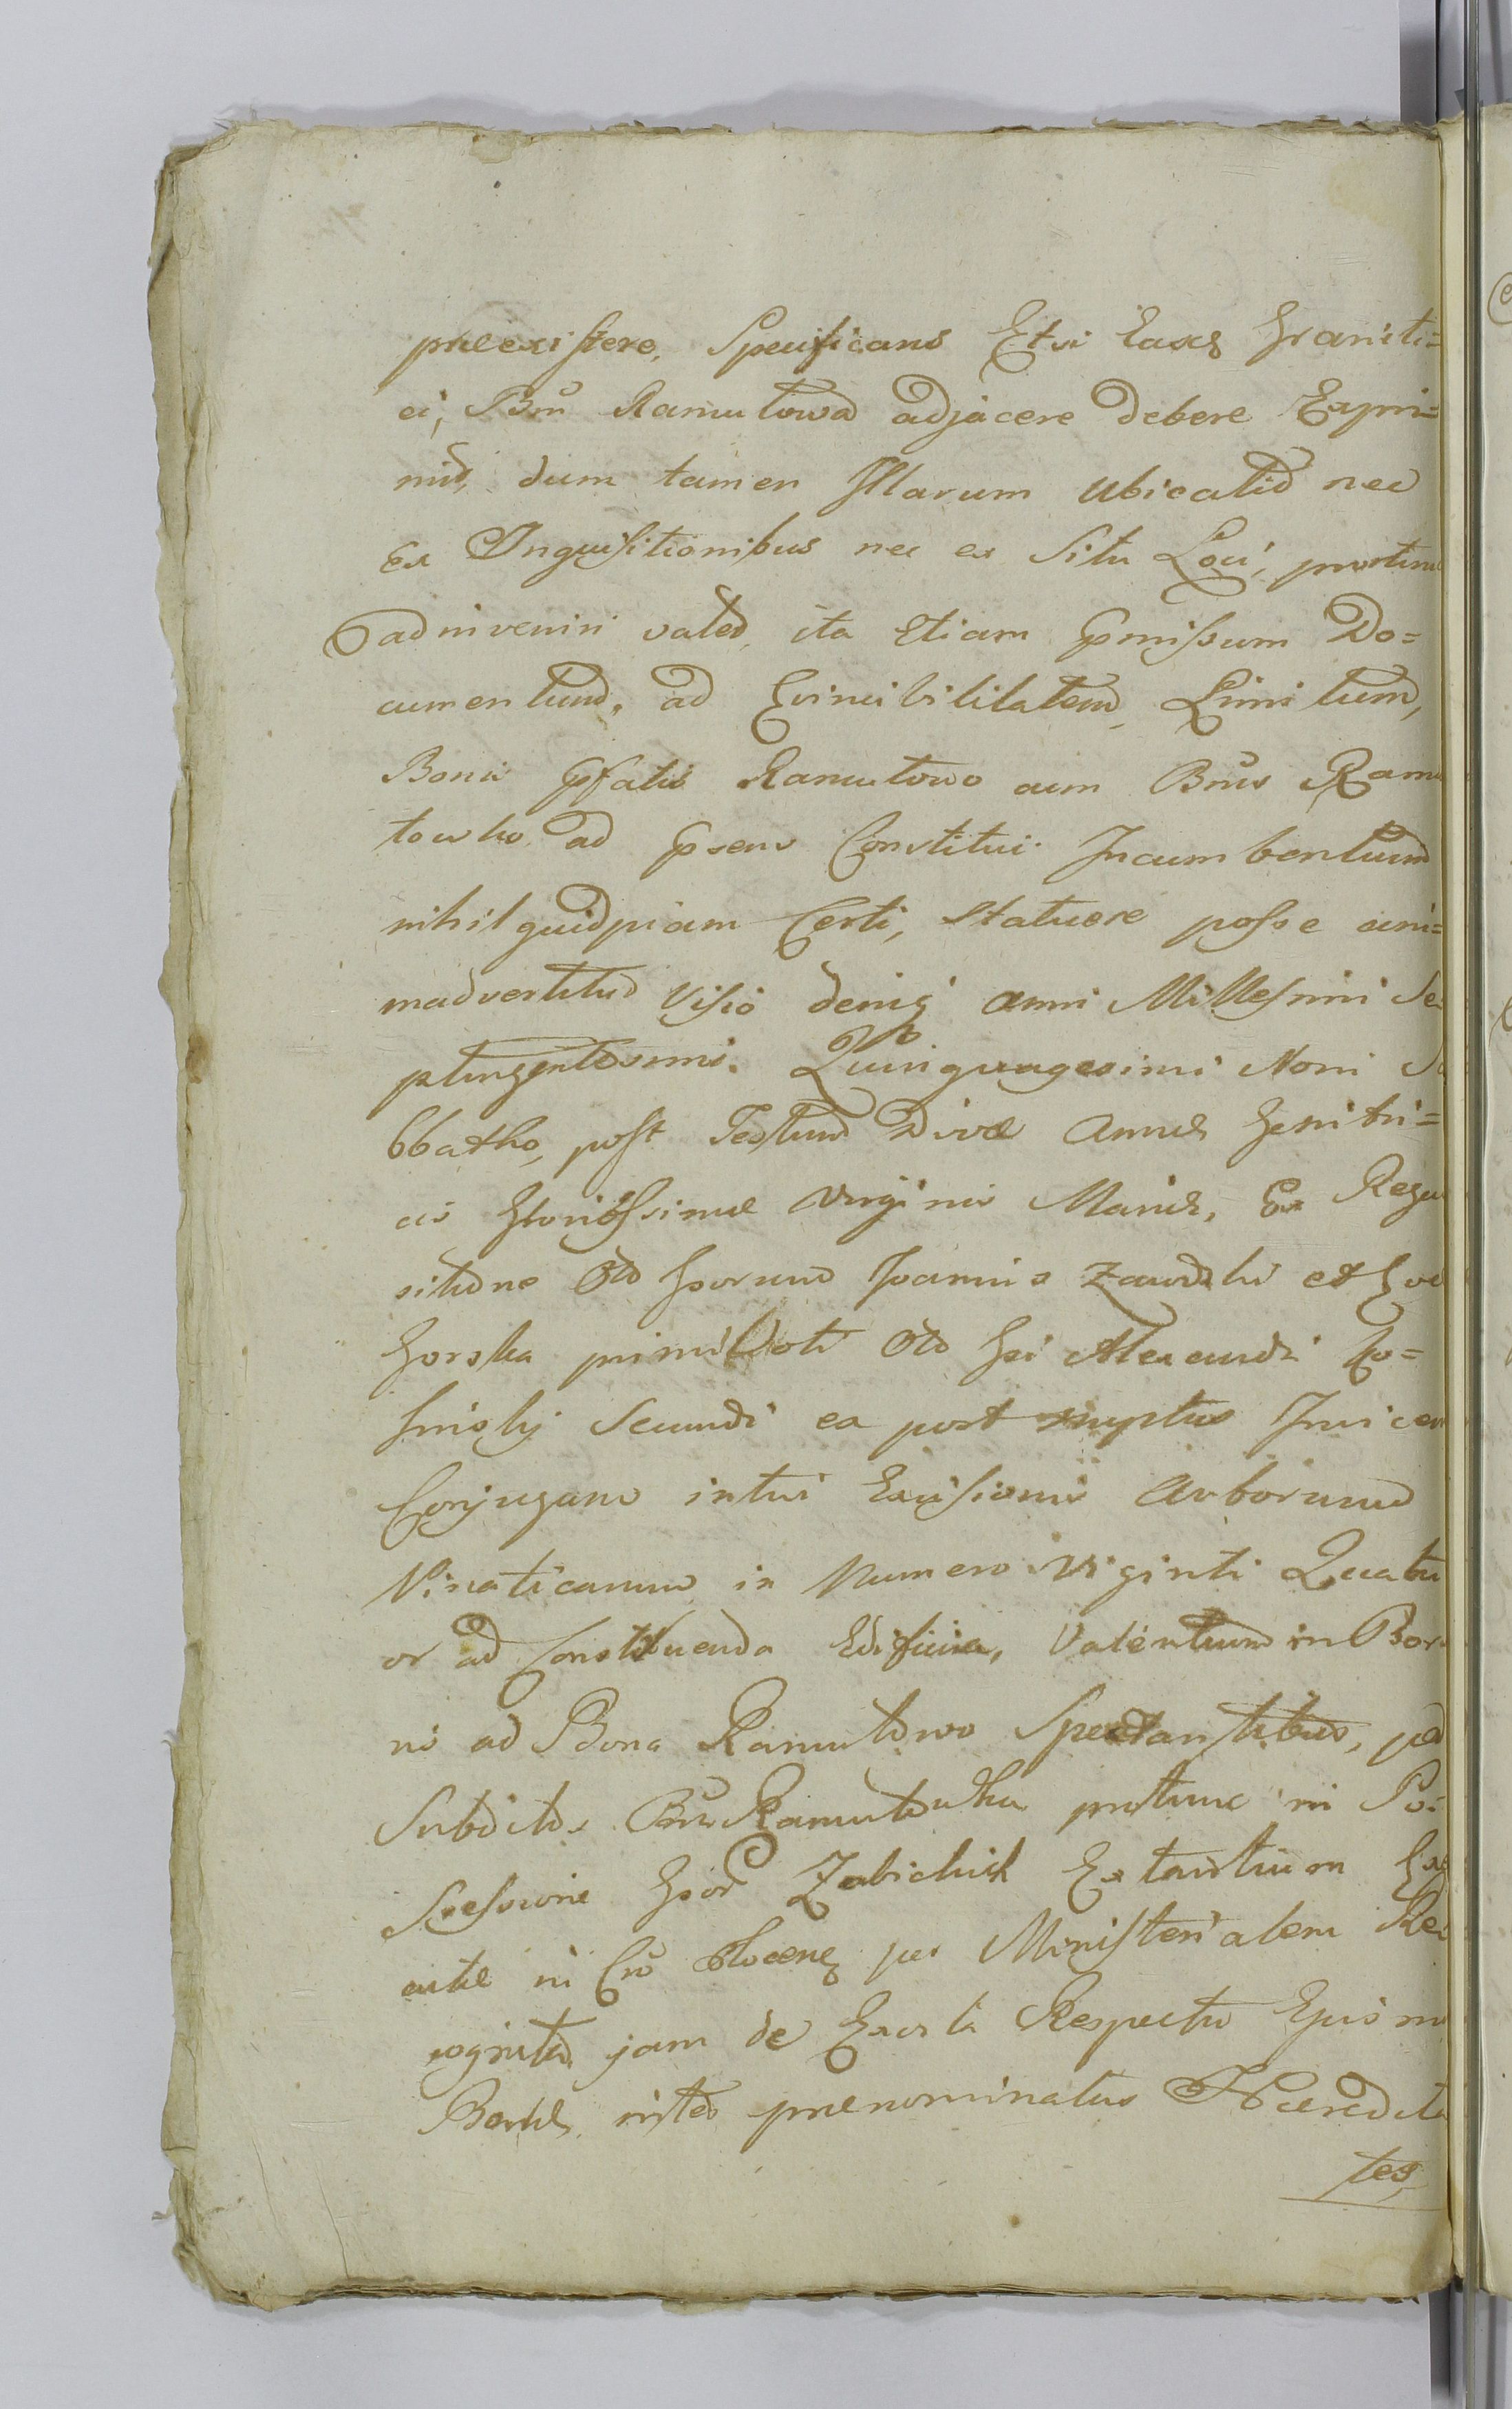 preexistere, Specificans Etsi Eaxes Graniti=
ei, Bm Ramutowo adjacere debere Expri=
mit, dum tamen Illarum Ubicatio nec
Ex Inquisitionibus nec ex Situ Loci, protunc
adinveniri valet, ita etiam Pmissum Do=
cumentum, ad Evincibilitatem, Limitum,
Bonis Pfatis Ramutowo cum Bnis Ramu
towko ad Psens Constitui Incumbentium
nihil quidpiam Certi, Statuere posse ani=
madvertitur Visio deniq anni Millesimi Se
ptingentesimi Quinquagesimi Noni Sa
bbatho, post Festum Divæ Annæ Genitri=
cis Gloriosissimæ Virginis Mariæ, Ex Requi
sitione Gsorum Joannis et
Gorska primi Voti Gsi Alexandri
Secundi ea post nuptus Invicem
Conjugum intui Excisionis Arborum
in Numero Viginti Quatu
or ad Constituenda Edificia, Valentium in
ad Bona Ramutowo Spectantibus, per
Subditos Bm Ramutowka protunc in Po
ssessione Gsor Extantium
in Cro per Ministerialem Re
cognita, jam de Exorta Respectu Ejusm
inter prænominatus Hæredita
tes,